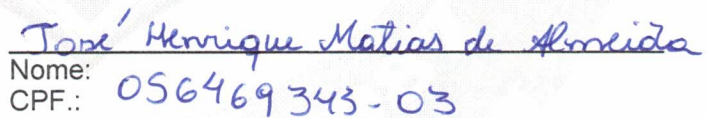 José Henrique Matias de Almeida
Nome:
CPF.: 056469343-03